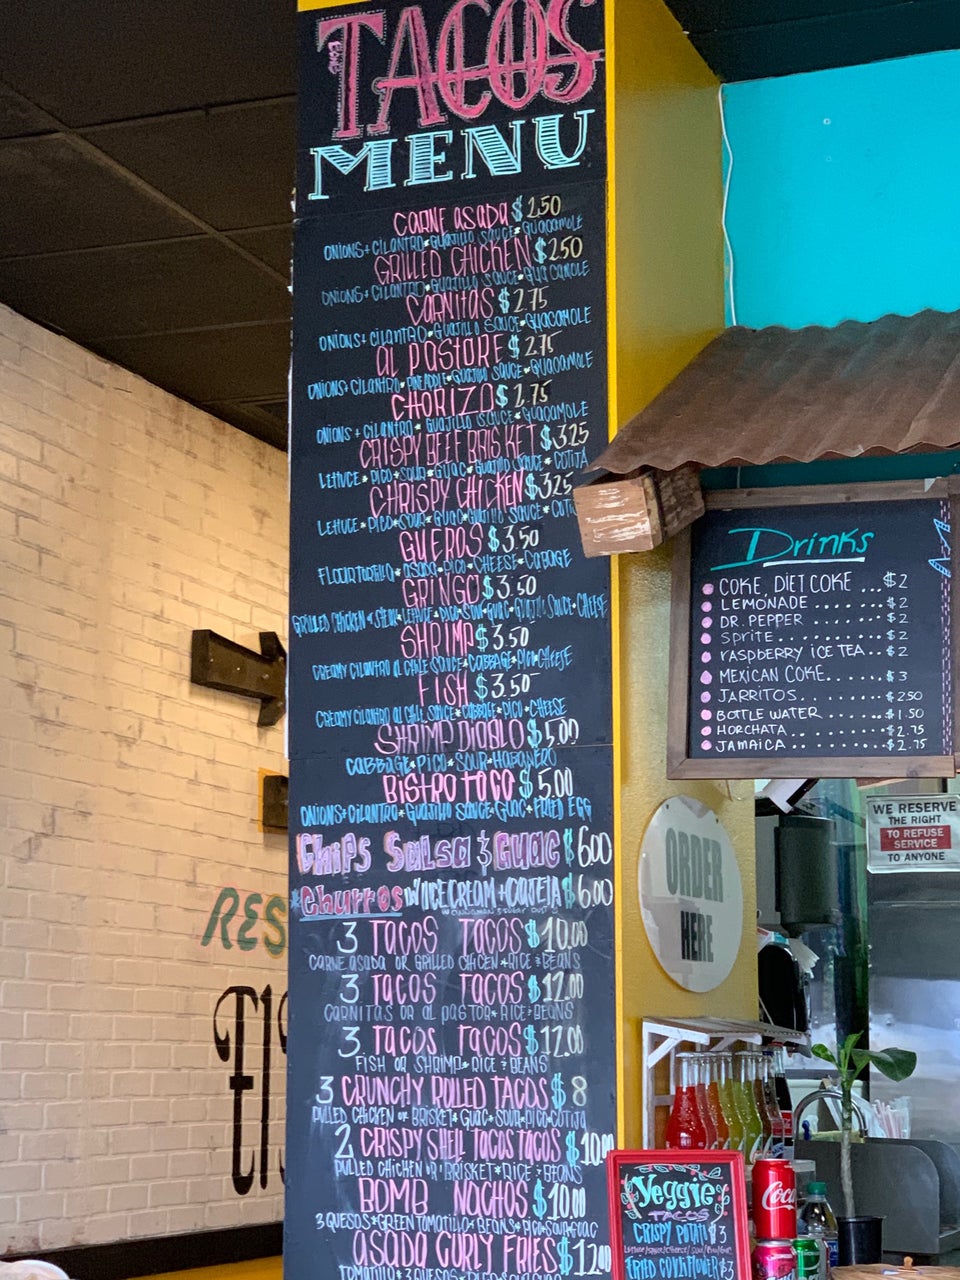 TACOS
MENU
CARNE ASADA $2.50
ONIONS + CILANTRO * GUAJILLO SAUCE * GUACAMOLE
GRILLED CHICKEN $2.50
ONIONS + CILANTRO * GUAJILLO SAUCE * GUACAMOLE
CARNITAS $2.75
ONIONS + CILANTRO * GUAJILLO SAUCE * GUACAMOLE
AL PASTORE $2.75
ONIONS + CILANTRO * PINEAPPLE * GUAJILLO SAUCE * GUACAMOLE
CHORIZO $2.75
ONIONS + CILANTRO * GUAJILLO SAUCE * GUACAMOLE
CRISPY BEEF BRISKET $3.25
LETTUCE * PICO * SOUR * GUAC * GUAJILLO SAUCE * COTIJA
CHRISPY CHICKEN $3.25
LETTUCE * PICO * SOUR * GUAC * GUAJILLO SAUCE *
GUEROS $3.50
ASADA * PICO * CHEESE * CABAGE
GRINGO $3.50
GRILLED CHICKEN * LETTUCE * PICO * SOUR * GUAC * SAUCE * CHEESE
SHRIMP $3.50
CREAMY CILANTRO AL CHILE SAUCE * CABBAGE * PICO * CHEESE
FISH $3.50
CREAMY CILANTRO AL CHILE SAUCE * CABBAGE * PICO * CHEESE
SHRIMP DIABLO $5.00
CABBAGE * PICO * SOUR * HABANERO
BISTRO TACO $5.00
ONIONS + CILANTRO * GUAJILLO SAUCE * GUAC * FRIED EGG
Chips Salsa & Guac $6.00
*Churros W/ ICECREAM + CAJETA $6.00
3 TACOS TACOS $10.00
CARNE ASADA OR GRILLED CHICEN * RICE & BEANS
3 TACOS TACOS $12.00
CARNITAS OR AL PASTOR * RICE & BEANS
3 TACOS TACOS $12.00
FISH OR SHRIMP * RICE & BEANS
3 CRUNCHY ROLLED TACOS $8
PULLED CHICKEN or BRISKET * GUAC * SOUR * PICO * COTIJA
2 CRISPY SHELL TACOS TACOS $10.00
PULLED CHICKEN OR BRISKET * RICE & BEANS
BOMB NACHOS $10.00
3 QUESOS * GREEN TOMATILLO * BEANS * PICO * SOUR * GUAC
ASADA CURLY FRIES $12.00
TOMATILLO * 3 QUESOS * PICO * SOUR * GUAC
Drinks
COKE, DIET COKE ... $2
LEMONADE ...... $2
DR. PEPPER ....... $2
SPRITE .......... $2
RASPBERRY ICE TEA .. $2
MEXICAN COKE ..... $3
JARRITOS ........ $2.50
BOTTLE WATER ..... $1.50
HORCHATA ....... $2.75
JAMAICA ........ $2.75
WE RESERVE
THE RIGHT
TO REFUSE
SERVICE
TO ANYONE
ORDER
HERE
RES
Veggie
TACOS
CRISPY POTATO $3
FRIED COULIFLOWER $3
Coca